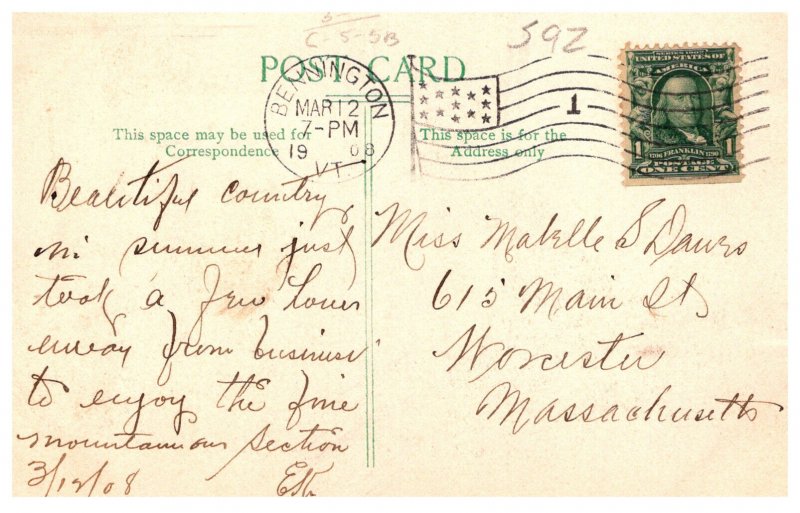 C-5-5B
592
POST CARD
BENNINGTON
MAR 12
7-PM
19 08
VT.
1
SERIES 1902
UNITED STATES OF
AMERICA
1706 FRANKLIN 1790
POSTAGE
1 ONE CENT 1
This space may be used for
Correspondence
This space is for the
Address only
Beautiful country
in summer just
took a few hours
away from business
to enjoy the fine
mountainous section
3/12/08
Miss Mabelle S Dawes
615 Main St
Worcester
Massachusetts